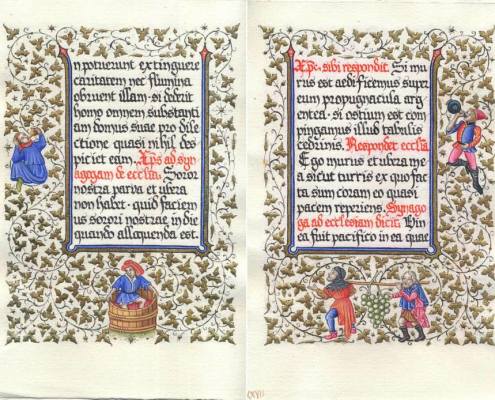 n potuerunt extinguere
caritatem nec flumina
obruent illam · si dederit
homo omnem substanti
am domus suae pro dile
ctione quasi nihil des
piciet eam. Xps ad syn
agogam de eccl̄ia: Soror
nostra parva et ubera
non habet · quid faciem
us sorori nostrae in die
quando alloquenda est.
Xp̄c · sibi respondit. Si mu
rus est aedificemus supr
eum propugnacula arg
entea · si ostium est con
pingamus illud tabulis
cedrinis. Respondet eccl̄ia.
Ego murus et ubera me
a sicut turris ex quo fac
ta sum coram eo quasi
pacem reperiens. Synago
ga ad ecclesiam dicit: Vin
ea fuit pacifico in ea quae